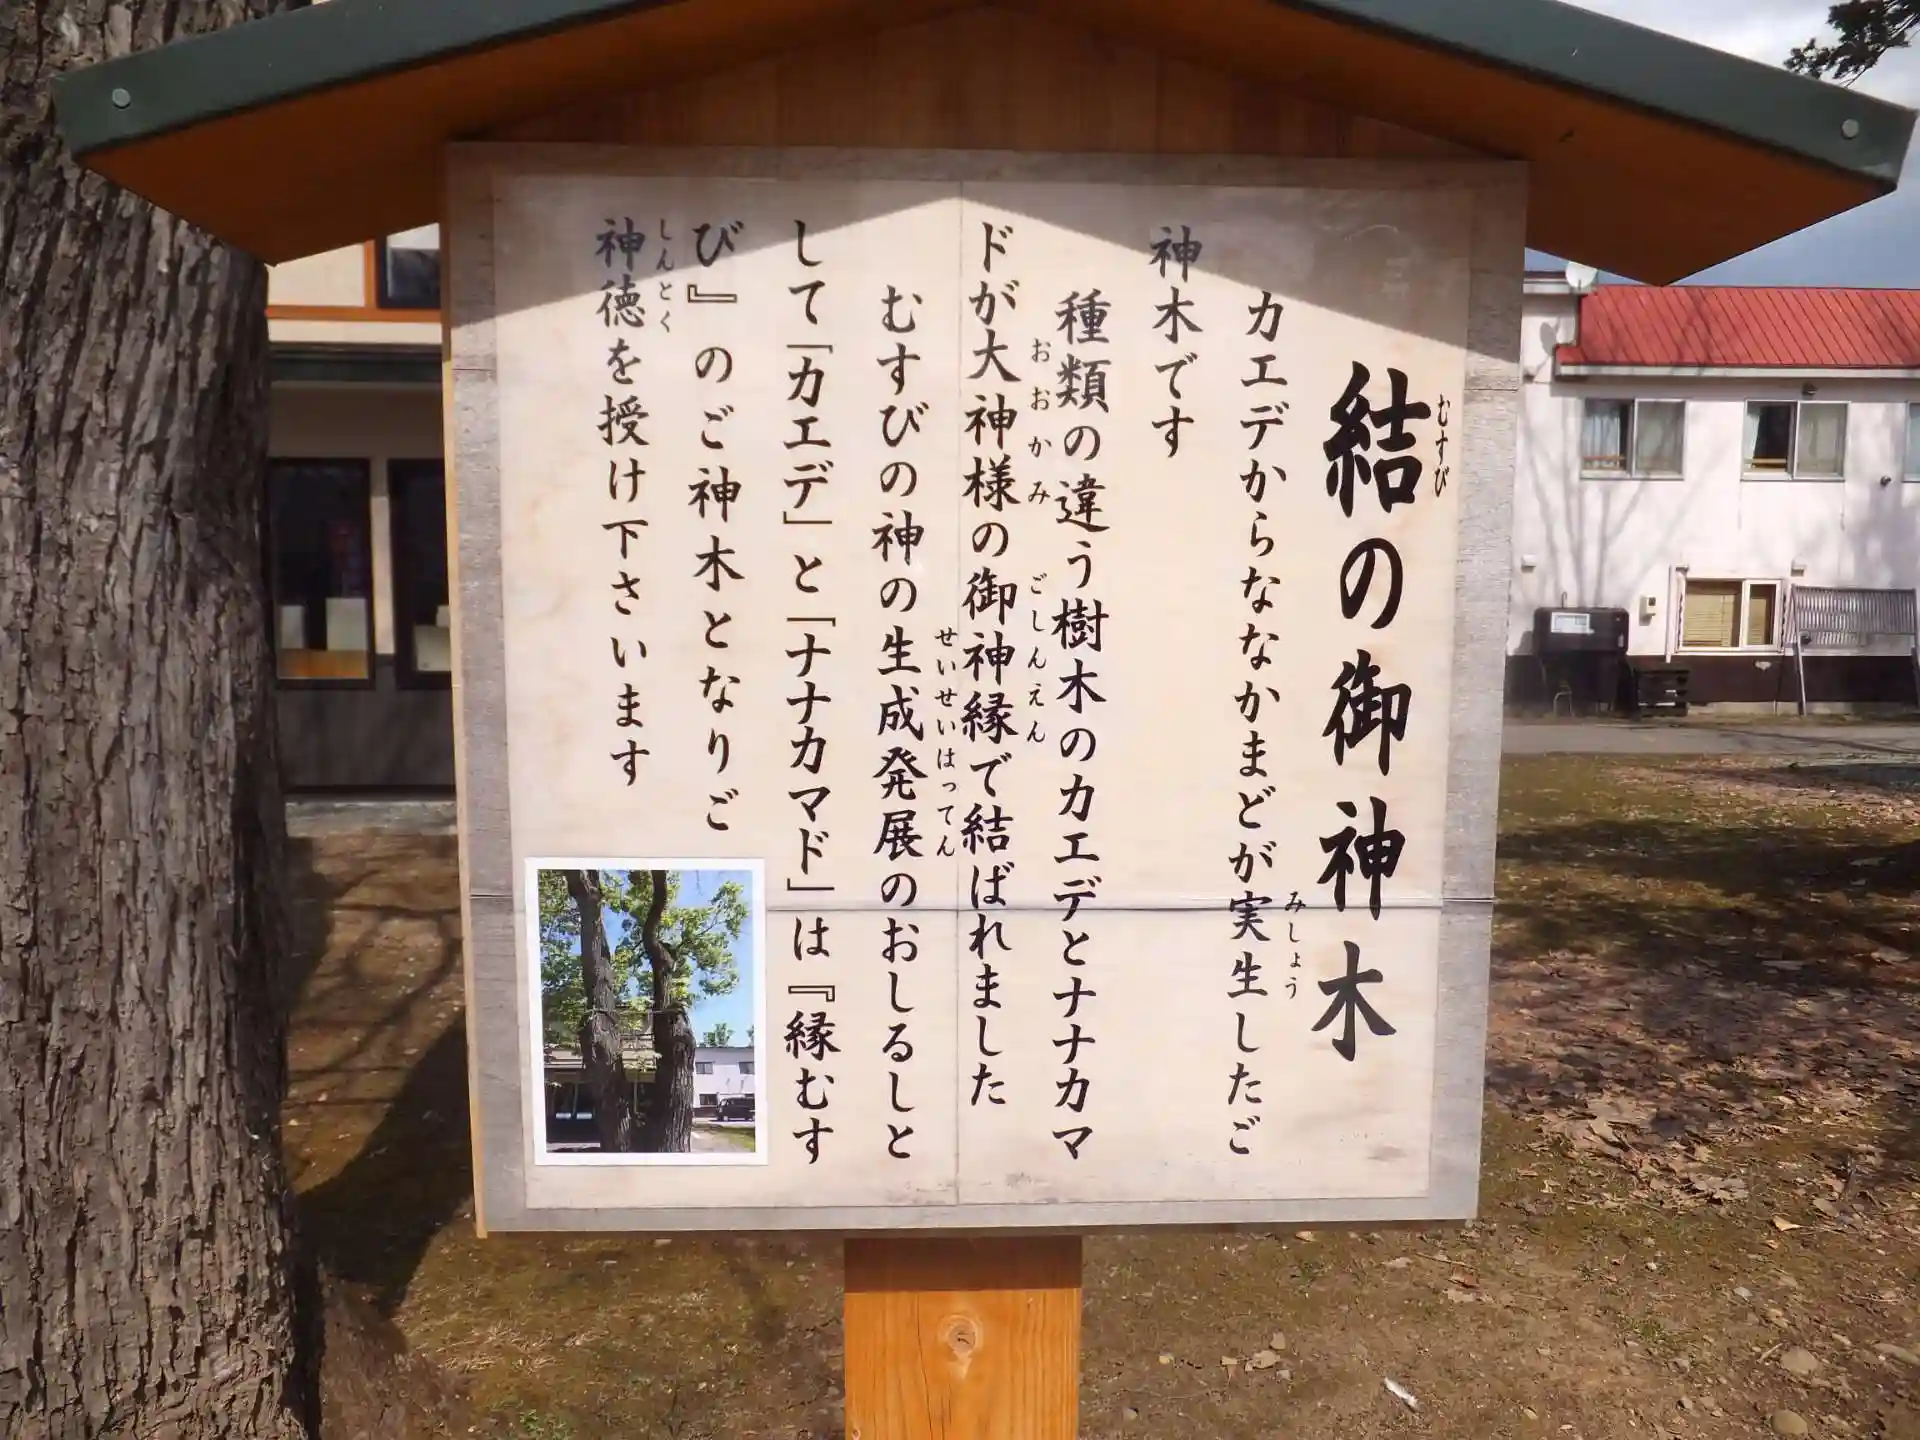 結の御神木
むすび
カエデからななかまどが実生したご
みしょう
神木です
種類の違う樹木のカエデとナナカマ
ドが大神様の御神縁で結ばれました
おおかみ ごしんえん
むすびの神の生成発展のおしるしと
せいせいはってん
して「カエデ」と「ナナカマド」は『縁むす
び』のご神木となりご
神徳を授け下さいます
しんとく